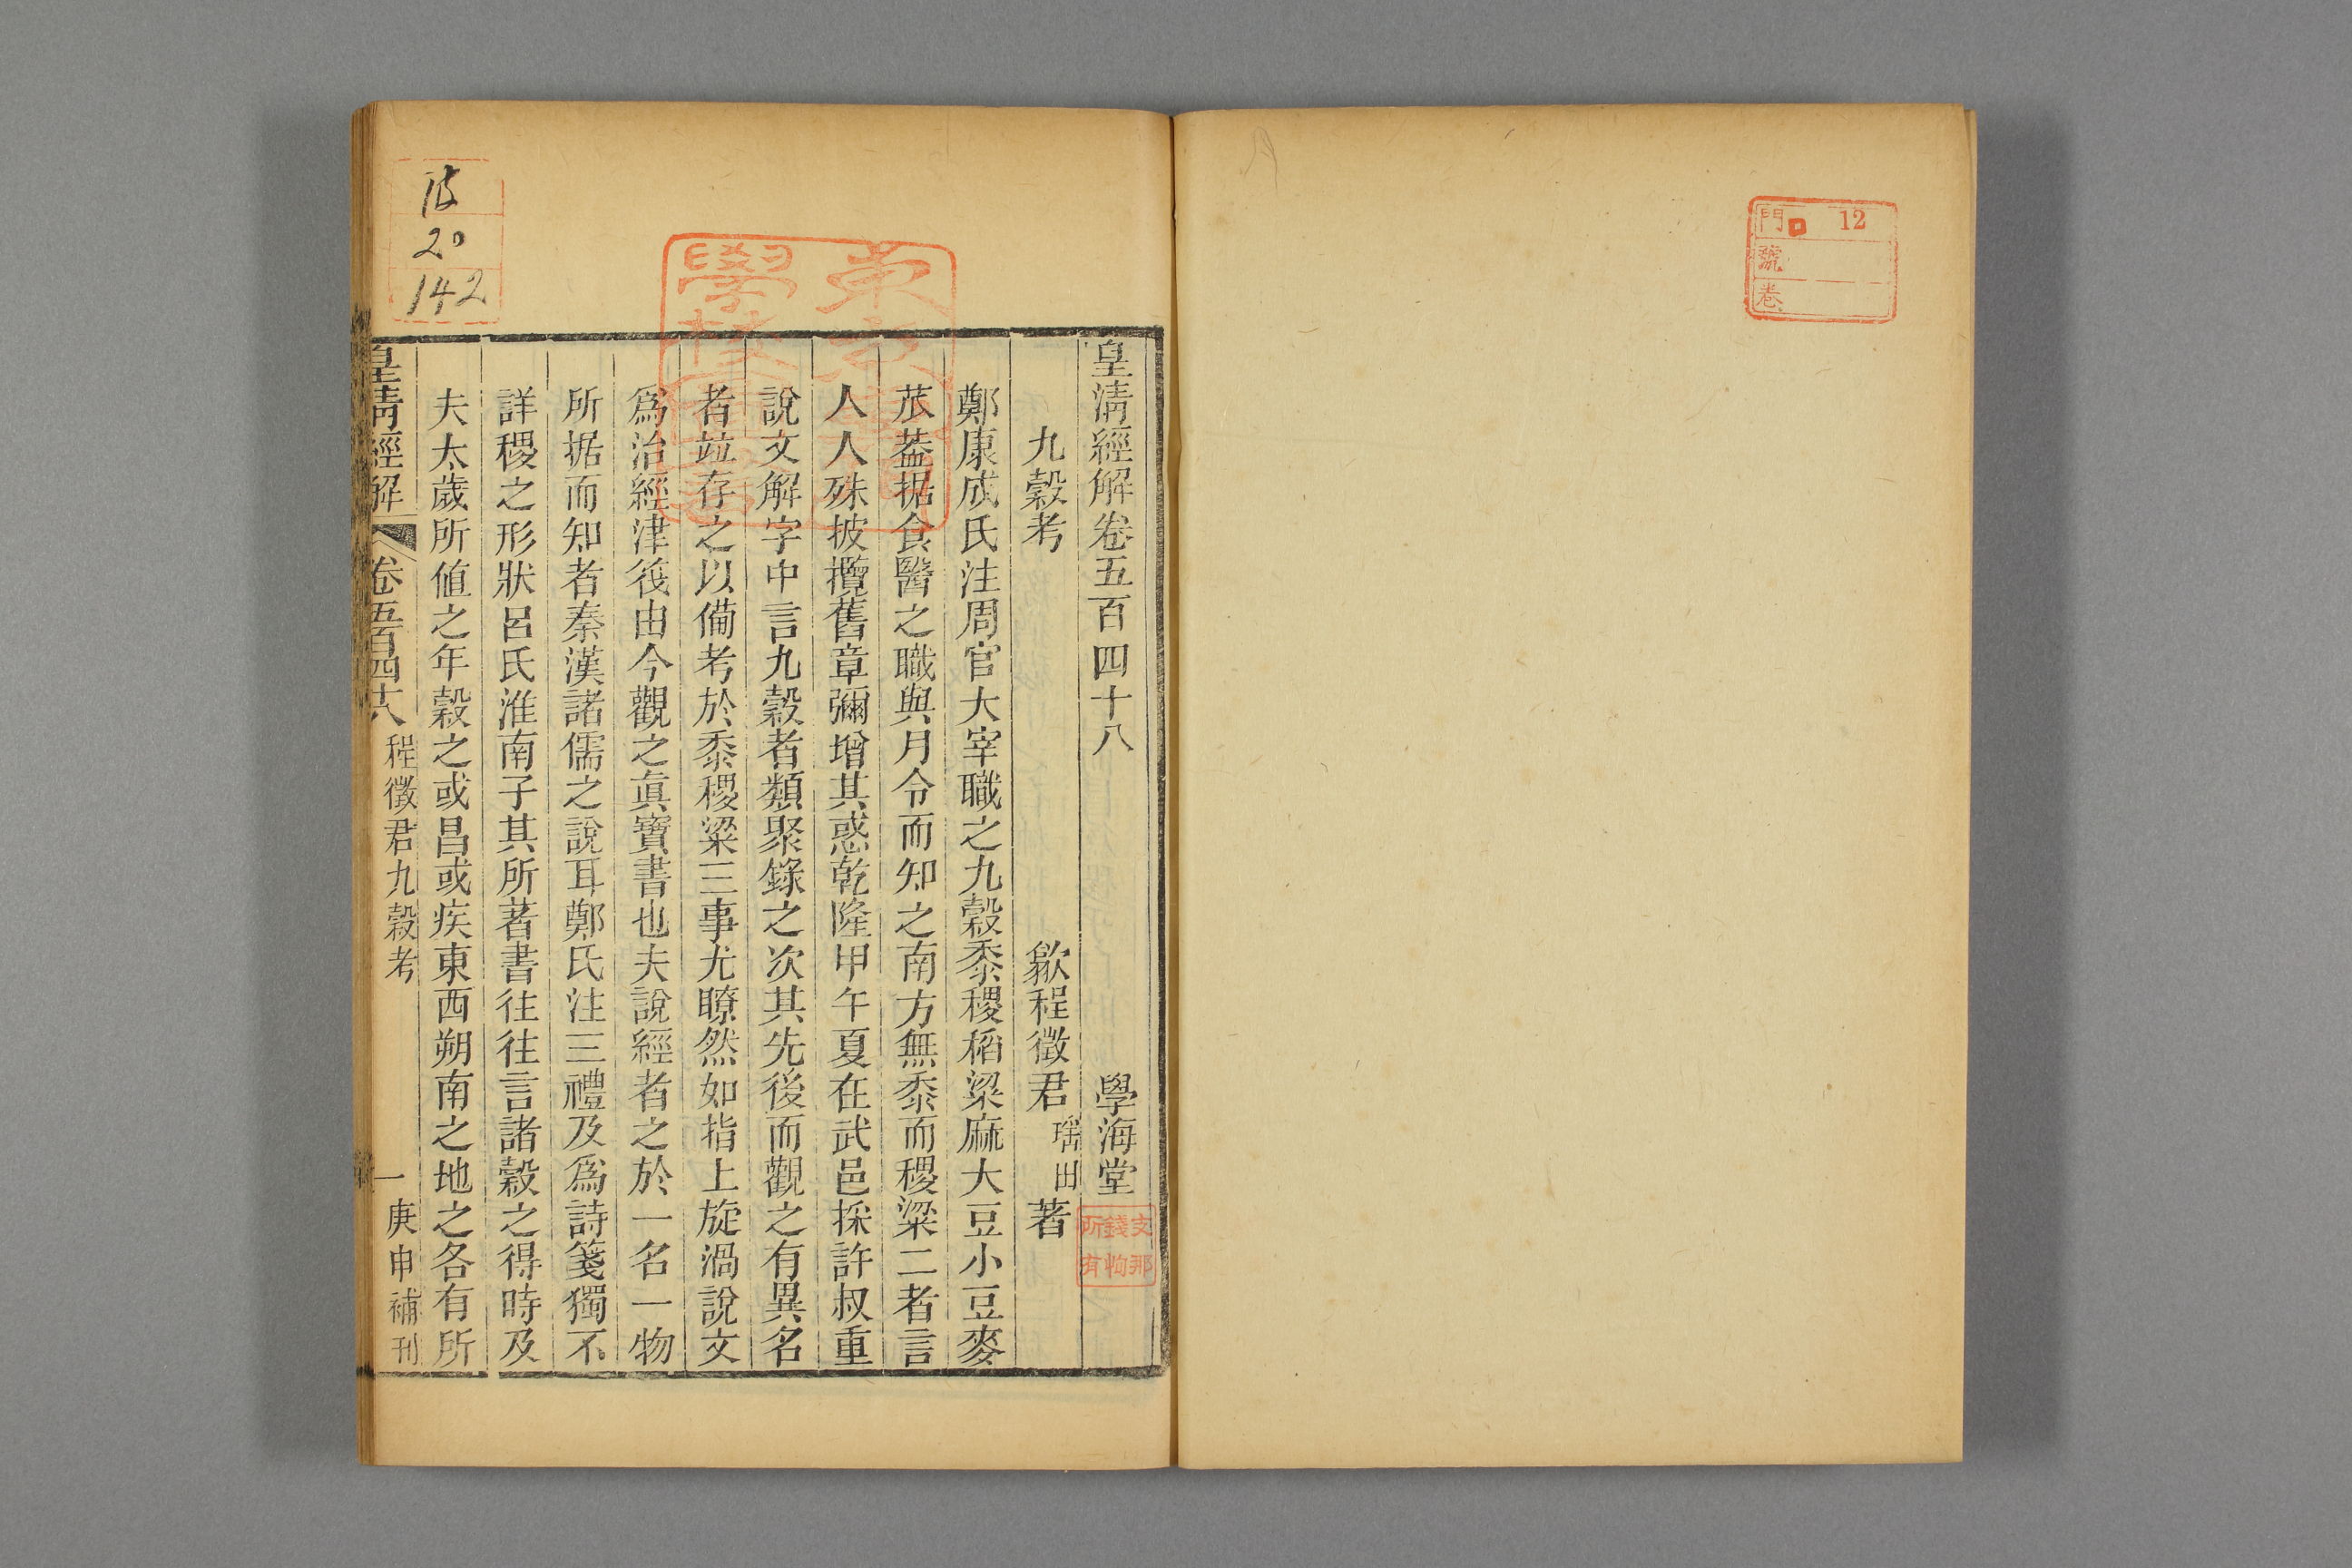 門 12
號
卷
皇淸經解卷五百四十八 學海堂
支那
錢恂
所有
九穀考 歙程徵君瑤田著
鄭康成氏注周官大宰職之九穀黍稷稻粱麻大豆小豆麥
苽葢据食醫之職與月令而知之南方無黍而稷粱二者言
人人殊披攬舊章彌增其惑乾隆甲午夏在武邑採許叔重
說文解字中言九穀者類聚錄之次其先後而觀之有異名
者竝存之以備考於黍稷粱三事尤瞭然如指上旋渦說文
爲治經津筏由今觀之眞寶書也夫說經者之於一名一物
所据而知者秦漢諸儒之說耳鄭氏注三禮及爲詩箋獨不
詳稷之形狀呂氏淮南子其所著書往往言諸穀之得時及
夫太歲所値之年穀之或昌或疾東西朔南之地之各有所
皇淸經解 卷五百四十八 程徵君九穀考 一 庚申補刊
20
142